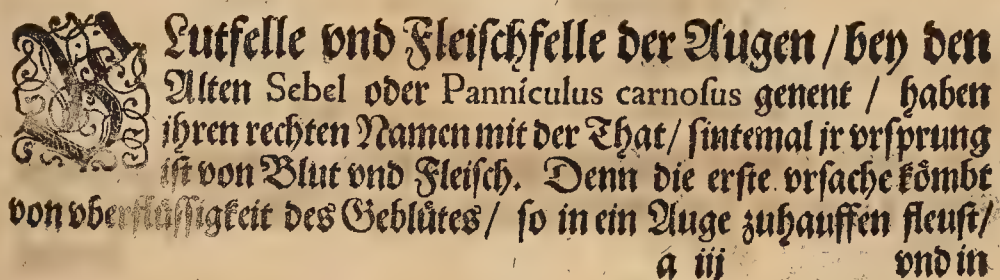 BLutfelle vnd Fleiſchfelle der Augen / bey den
Alten Sebel oder Panniculus carnoſus genent / haben
ihren rechten Namen mit der That / ſintemal jr vrſprung
iſt von Blut vnd Fleiſch. Denn die erſte vrſache kömbt
von vberflüſſigkeit des Geblütes / ſo in ein Auge zuhauffen fleuſt /
a iij vnd in